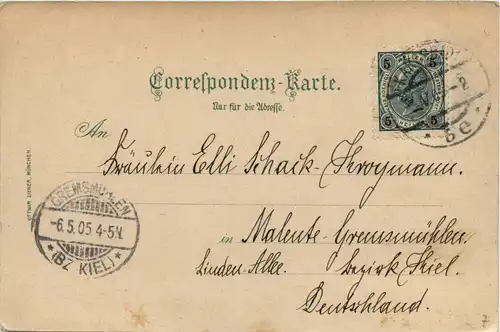 Correspondenz-Karte.
Nur für die Adresse.
5 5
5 5
6e
An
Fräulein Elli Schack-Kroymann.
in Malente-Gremsmühlen
Linden-Allee. Bezirk Kiel.
Deutschland.
GREMSMÜHLEN
-6.5.05 4-5N.
* (BZ KIEL) *
OTTMAR ZIEHER, MÜNCHEN.